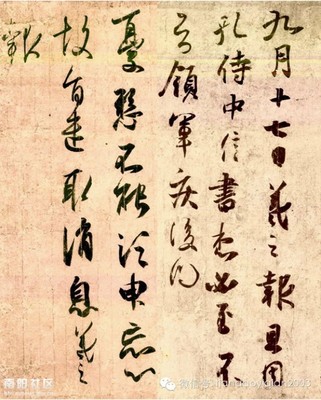 九月十七日羲之報且因
孔侍中信書想必至不
知領軍疾後問
憂懸不能須臾忘心
故旨遣取消息羲之
報
西祠社区